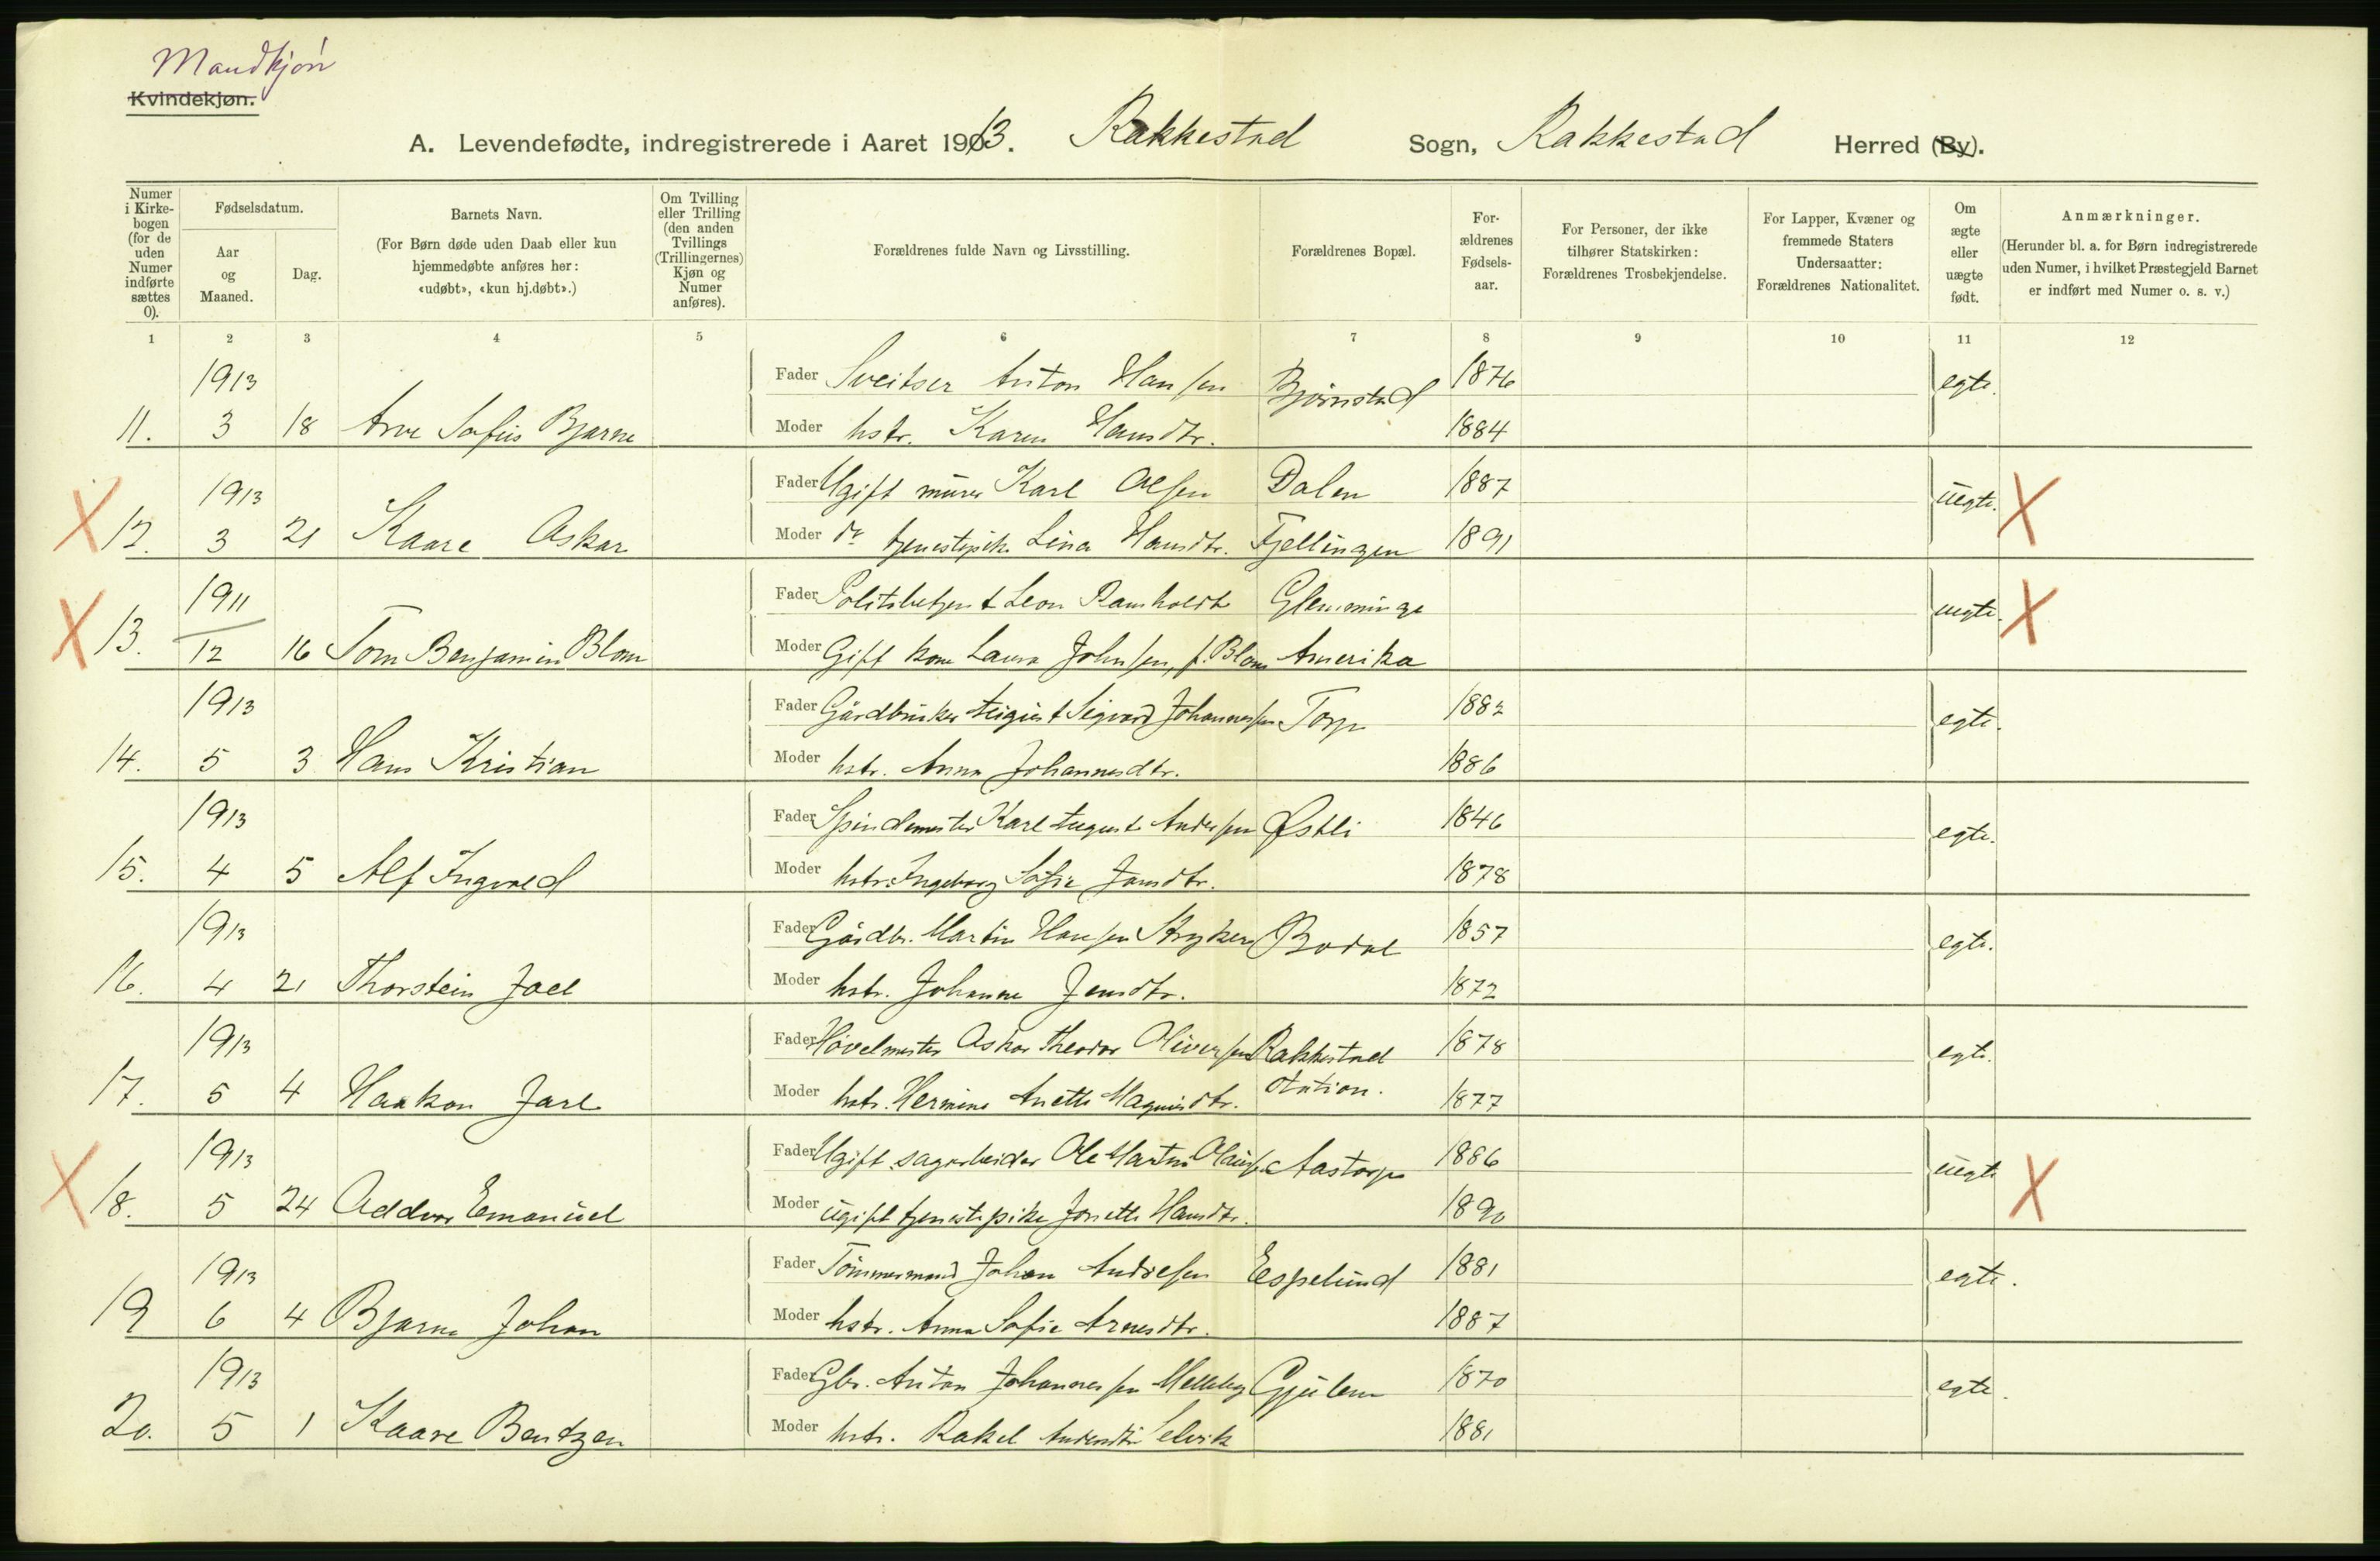 Mandkjøn
Kvindekjøn.
A. Levendefødte, indregistrerede i Aaret 1913. Rakkestad Sogn, Rakkestad Herred (By).
Numer i Kirkebogen (for de uden Numer indførte sættes 0).
Fødselsdatum.
Aar og Maaned.
Dag.
Barnets Navn.
(For Børn døde uden Daab eller kun hjemmedøbte anføres her: «udøbt», «kun hj.døbt».)
Om Tvilling eller Trilling (den anden Tvillings (Trillingernes) Kjøn og Numer anføres).
Forældrenes fulde Navn og Livsstilling.
Forældrenes Bopæl.
Forældrenes Fødselsaar.
For Personer, der ikke tilhører Statskirken: Forældrenes Trosbekjendelse.
For Lapper, Kvæner og fremmede Staters Undersaatter: Forældrenes Nationalitet.
Om ægte eller uægte født.
Anmærkninger.
(Herunder bl. a. for Børn indregistrerede uden Numer, i hvilket Præstegjeld Barnet er indført med Numer o. s. v.)
1 2 3 4 5 6 7 8 9 10 11 12
1913 Fader Sveitser Anton Hansen Bjørnstad 1876 egte.
11. 3 18 Arve Sofus Bjarne Moder hstr. Karen Hansdtr. 1884
1913 Fader Ugift murer Karl Olsen Dalen 1887 uegte. X
X 12. 3 21 Kaare Oskar Moder do tjenestepike Lina Hansdtr. Fjellingen 1891
1911 Fader Politibetjent Leon Ramholdt Glemminge uegte. X
X 13. 12 16 Tom Benjamin Blom Moder Gift kone Laura Johnsen, f. Blom Amerika
1913 Fader Gårdbruker August Sigvard Johannessen Torp 1882 egte.
14. 5 3 Hans Kristian Moder hstr. Anna Johannesdtr. 1886
1913 Fader Spindemester Karl August Andersen Østli 1846 egte.
15. 4 5 Alf Ingvald Moder hstr. Ingeborg Sofie Jansdtr. 1878
1913 Fader Gårdbr. Martin Hansen Stryken Bodal 1857 egte.
16. 4 21 Thorstein Joel Moder hstr. Johanne Jensdtr. 1872
1913 Fader Høvelmester Oskar Theodor Oliversen Rakkestad 1878 egte.
17. 5 4 Haakon Jarl Moder hstr. Hermine Anette Magnusdtr. Station. 1877
1913 Fader Ugift sagarbeider Ole Martin Olausen Aastorp 1886 uegte X
X 18. 5 24 Oddvar Emanuel Moder ugift tjenestepike Jonette Hansdtr. 1890
1913 Fader Tømmermand Johan Andresen Espelund 1881 egte.
19 6 4 Bjarne Johan Moder hstr. Anna Sofie Arnesdtr. 1887
1913 Fader Gbr. Anton Johannessen Melleby Gjulem 1870 egte.
20. 5 1 Kaare Bentzen Moder hstr. Rakel Andersdtr Selvik 1881